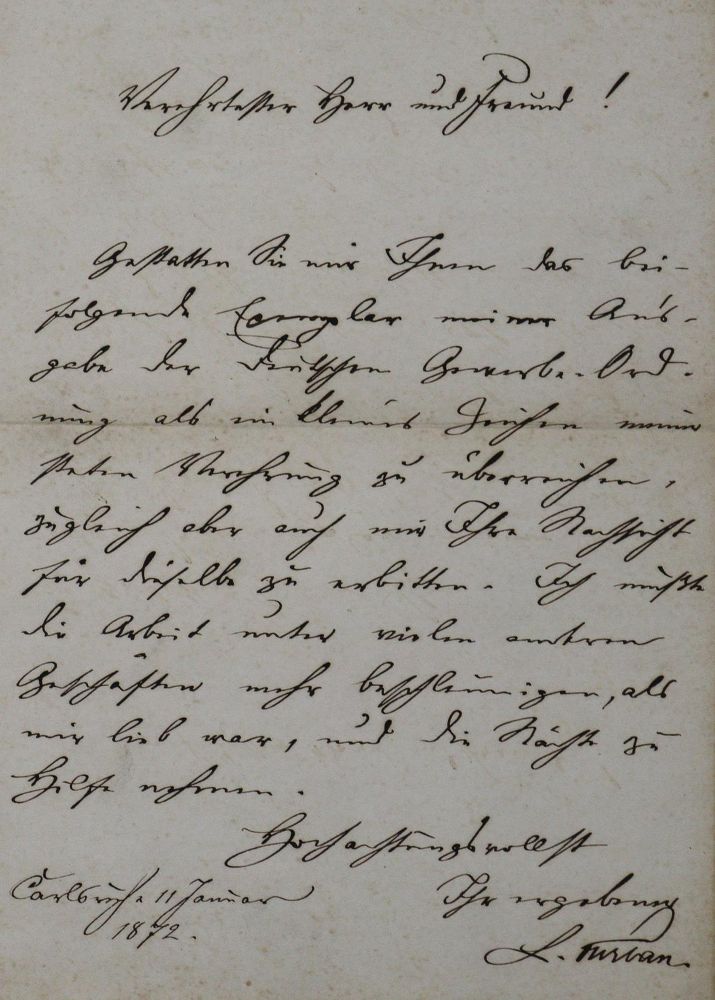 Verehrtester Herr und Freund!
Gestatten Sie mir Ihnen das bei-
folgende Exemplar meiner Aus-
gabe der Deutschen Gewerbe-Ord-
nung als ein kleines Zeichen
Verehrung zu überreichen,
zugleich aber auch mir Ihre Nachsicht
für dieselbe zu erbitten. Ich mußte
die Arbeit unter vielen anderen
Geschäften mehr beschleunigen, als
mir lieb war, und die Nächte zu
Hilfe nehmen.
Hochachtungsvollst
Carlsruhe 11 Januar
1872.
Ihr ergebener
L. Turban.